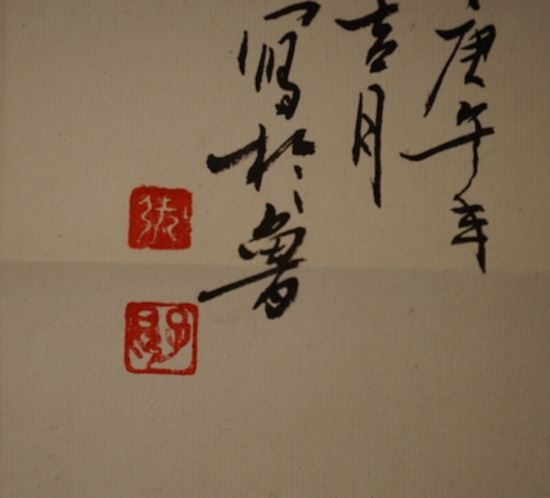 庚午年
吉月
寫於魯